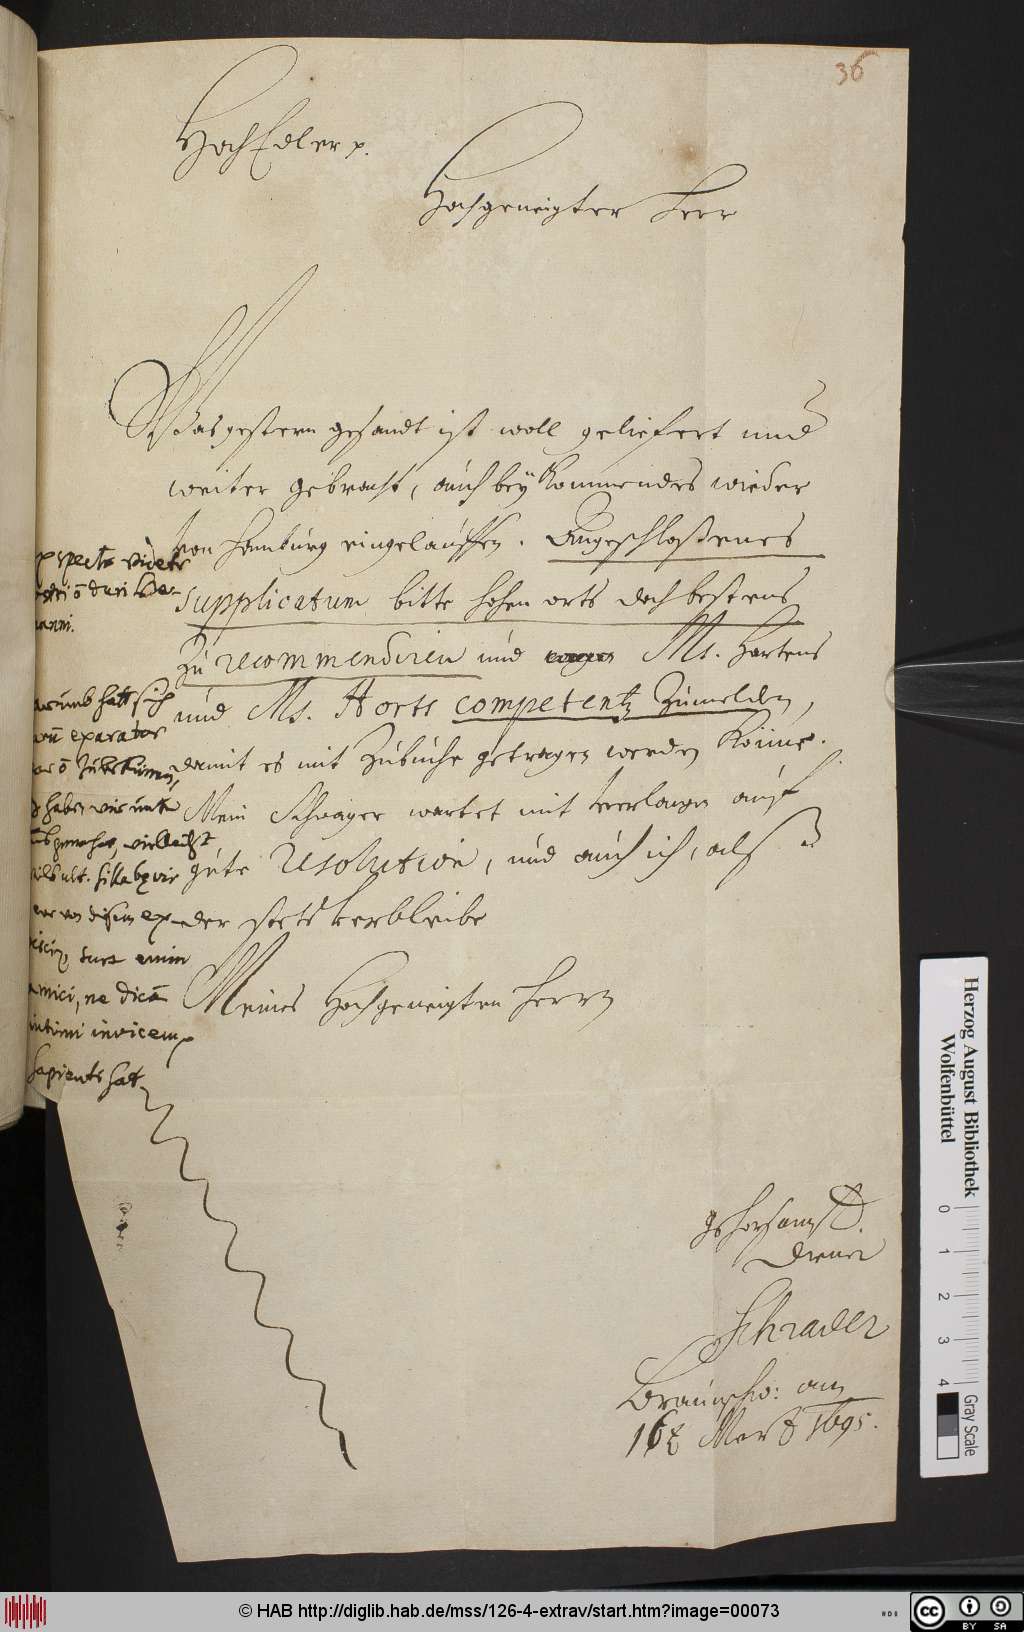 36
HochEdler p.
Hochgeneigter Herr
Was gestern gesandt ist woll geliefert und
weiter gebracht, auch beÿ Kommendes wieder
von Hamburg eingelauffen. Angeschloßenes
supplicatum bitte hohen orts doch bestens
zu recommendiren und Ms. Hartens
und Ms. Horts competentz zumelden,
damit es mit zubuche getragen werden Könne.
Mein Schwager wartet mit verlangen auf
gute resolution, und auch ich, als
der stets verbleibe
Meines Hochgeneigten Herrn
videtr
darumb hatt sich
exarator
haben wir
vielleicht
ult.
von
sunt enim
amici, ne dicā
intimi invicem p
sapienti sat
gehorsamst.
Diener
Schrader
Braunschw: am
16t Mertz 1695.
Herzog August Bibliothek
Wolfenbüttel
0 1 2 3 4
Gray Scale
© HAB http://diglib.hab.de/mss/126-4-extrav/start.htm?image=00073
cc BY SA